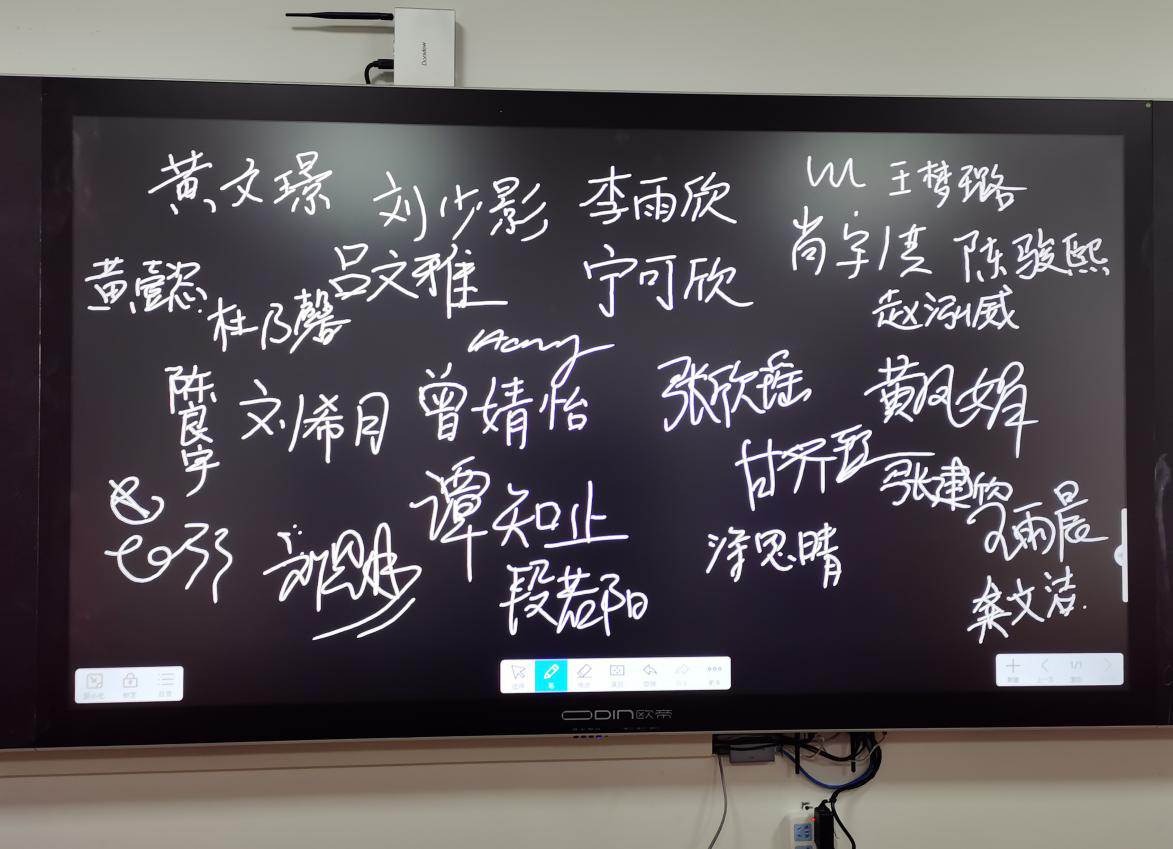 黄文璟
刘少影
李雨欣
王梦璐
黄懿
吕文雅
宁可欣
尚宇
陈骏熙
杜乃馨
赵泓威
陈良宇
刘希月
曾婧怡
张欣瑶
黄凤娟
甘齐
张建欣
谭知止
王雨晨
涂思晴
段若阳
龚文洁
1/1
ODIN欧帝